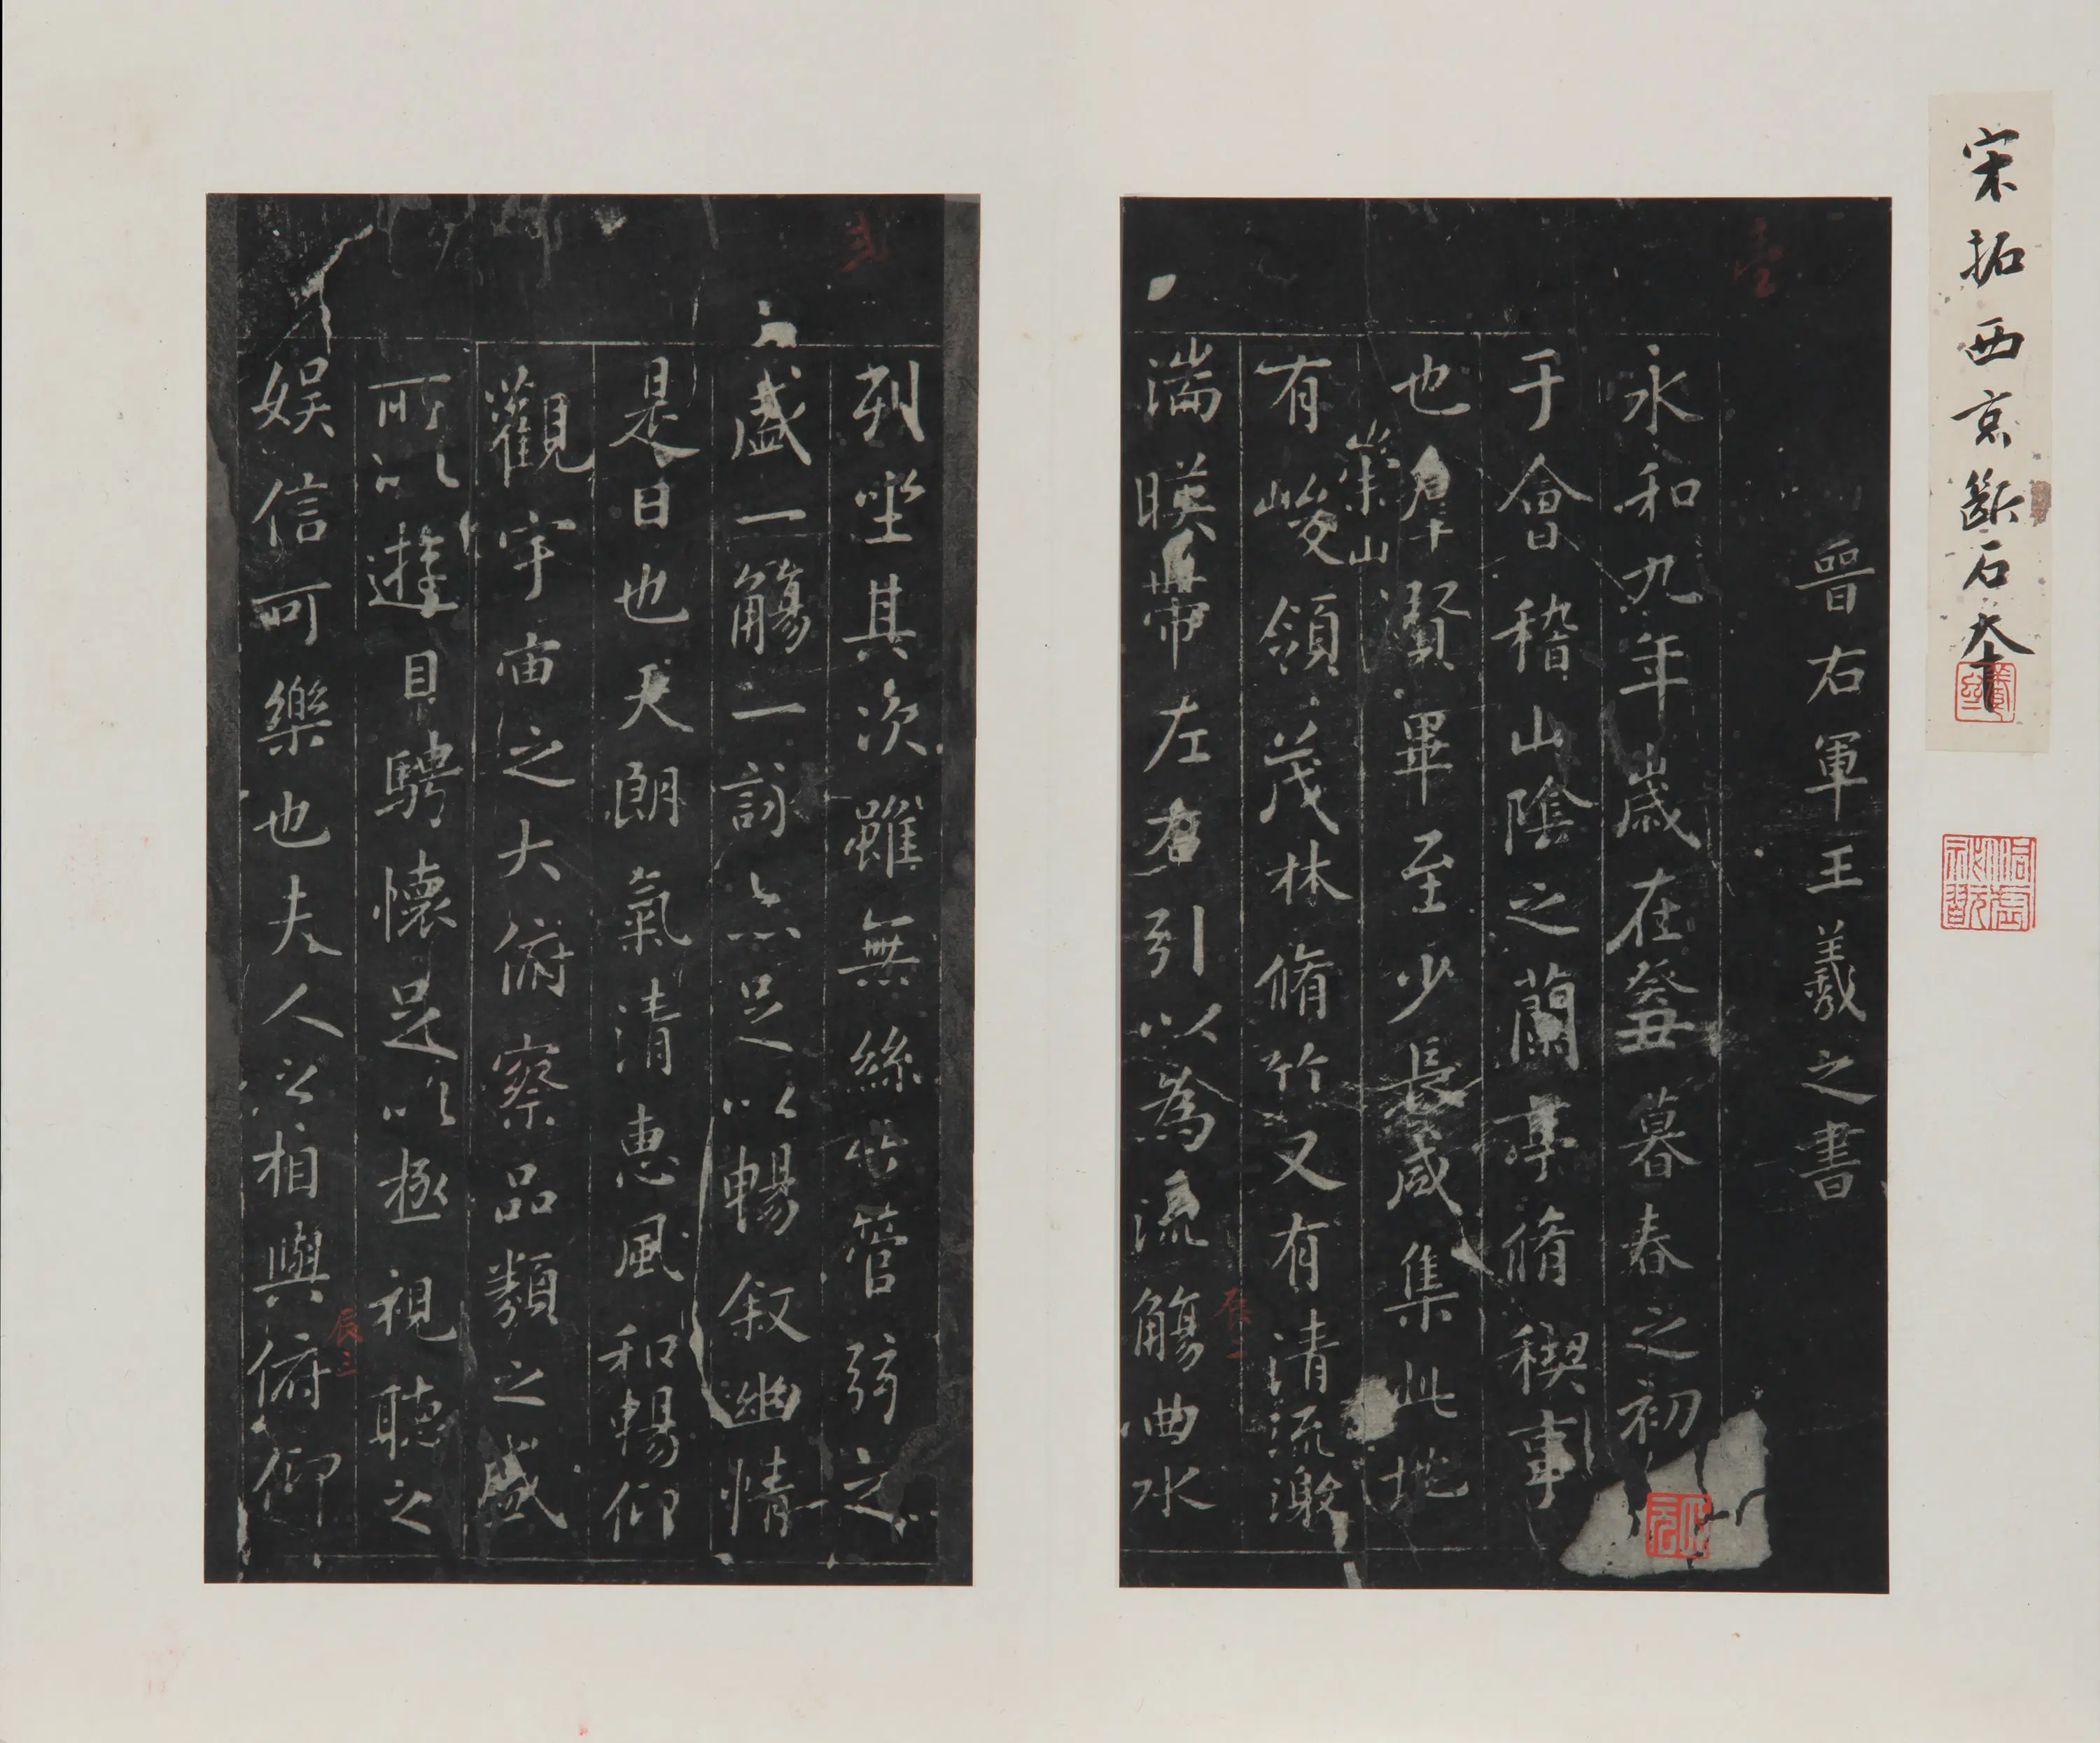 宋拓西京斷石本
晉右軍王羲之書
永和九年歲在癸丑暮春之初
于會稽山陰之蘭亭脩稧事
也羣賢畢至少長咸集此地
崇山
有峻領茂林脩竹又有清流激
湍暎帶左右引以為流觴曲水
列坐其次雖無絲竹管弦之
盛一觴一詠亦足以暢叙幽情
是日也天朗氣清惠風和暢仰
觀宇宙之大俯察品類之盛
所以遊目騁懷足以極視聽之
娛信可樂也夫人之相與俯仰